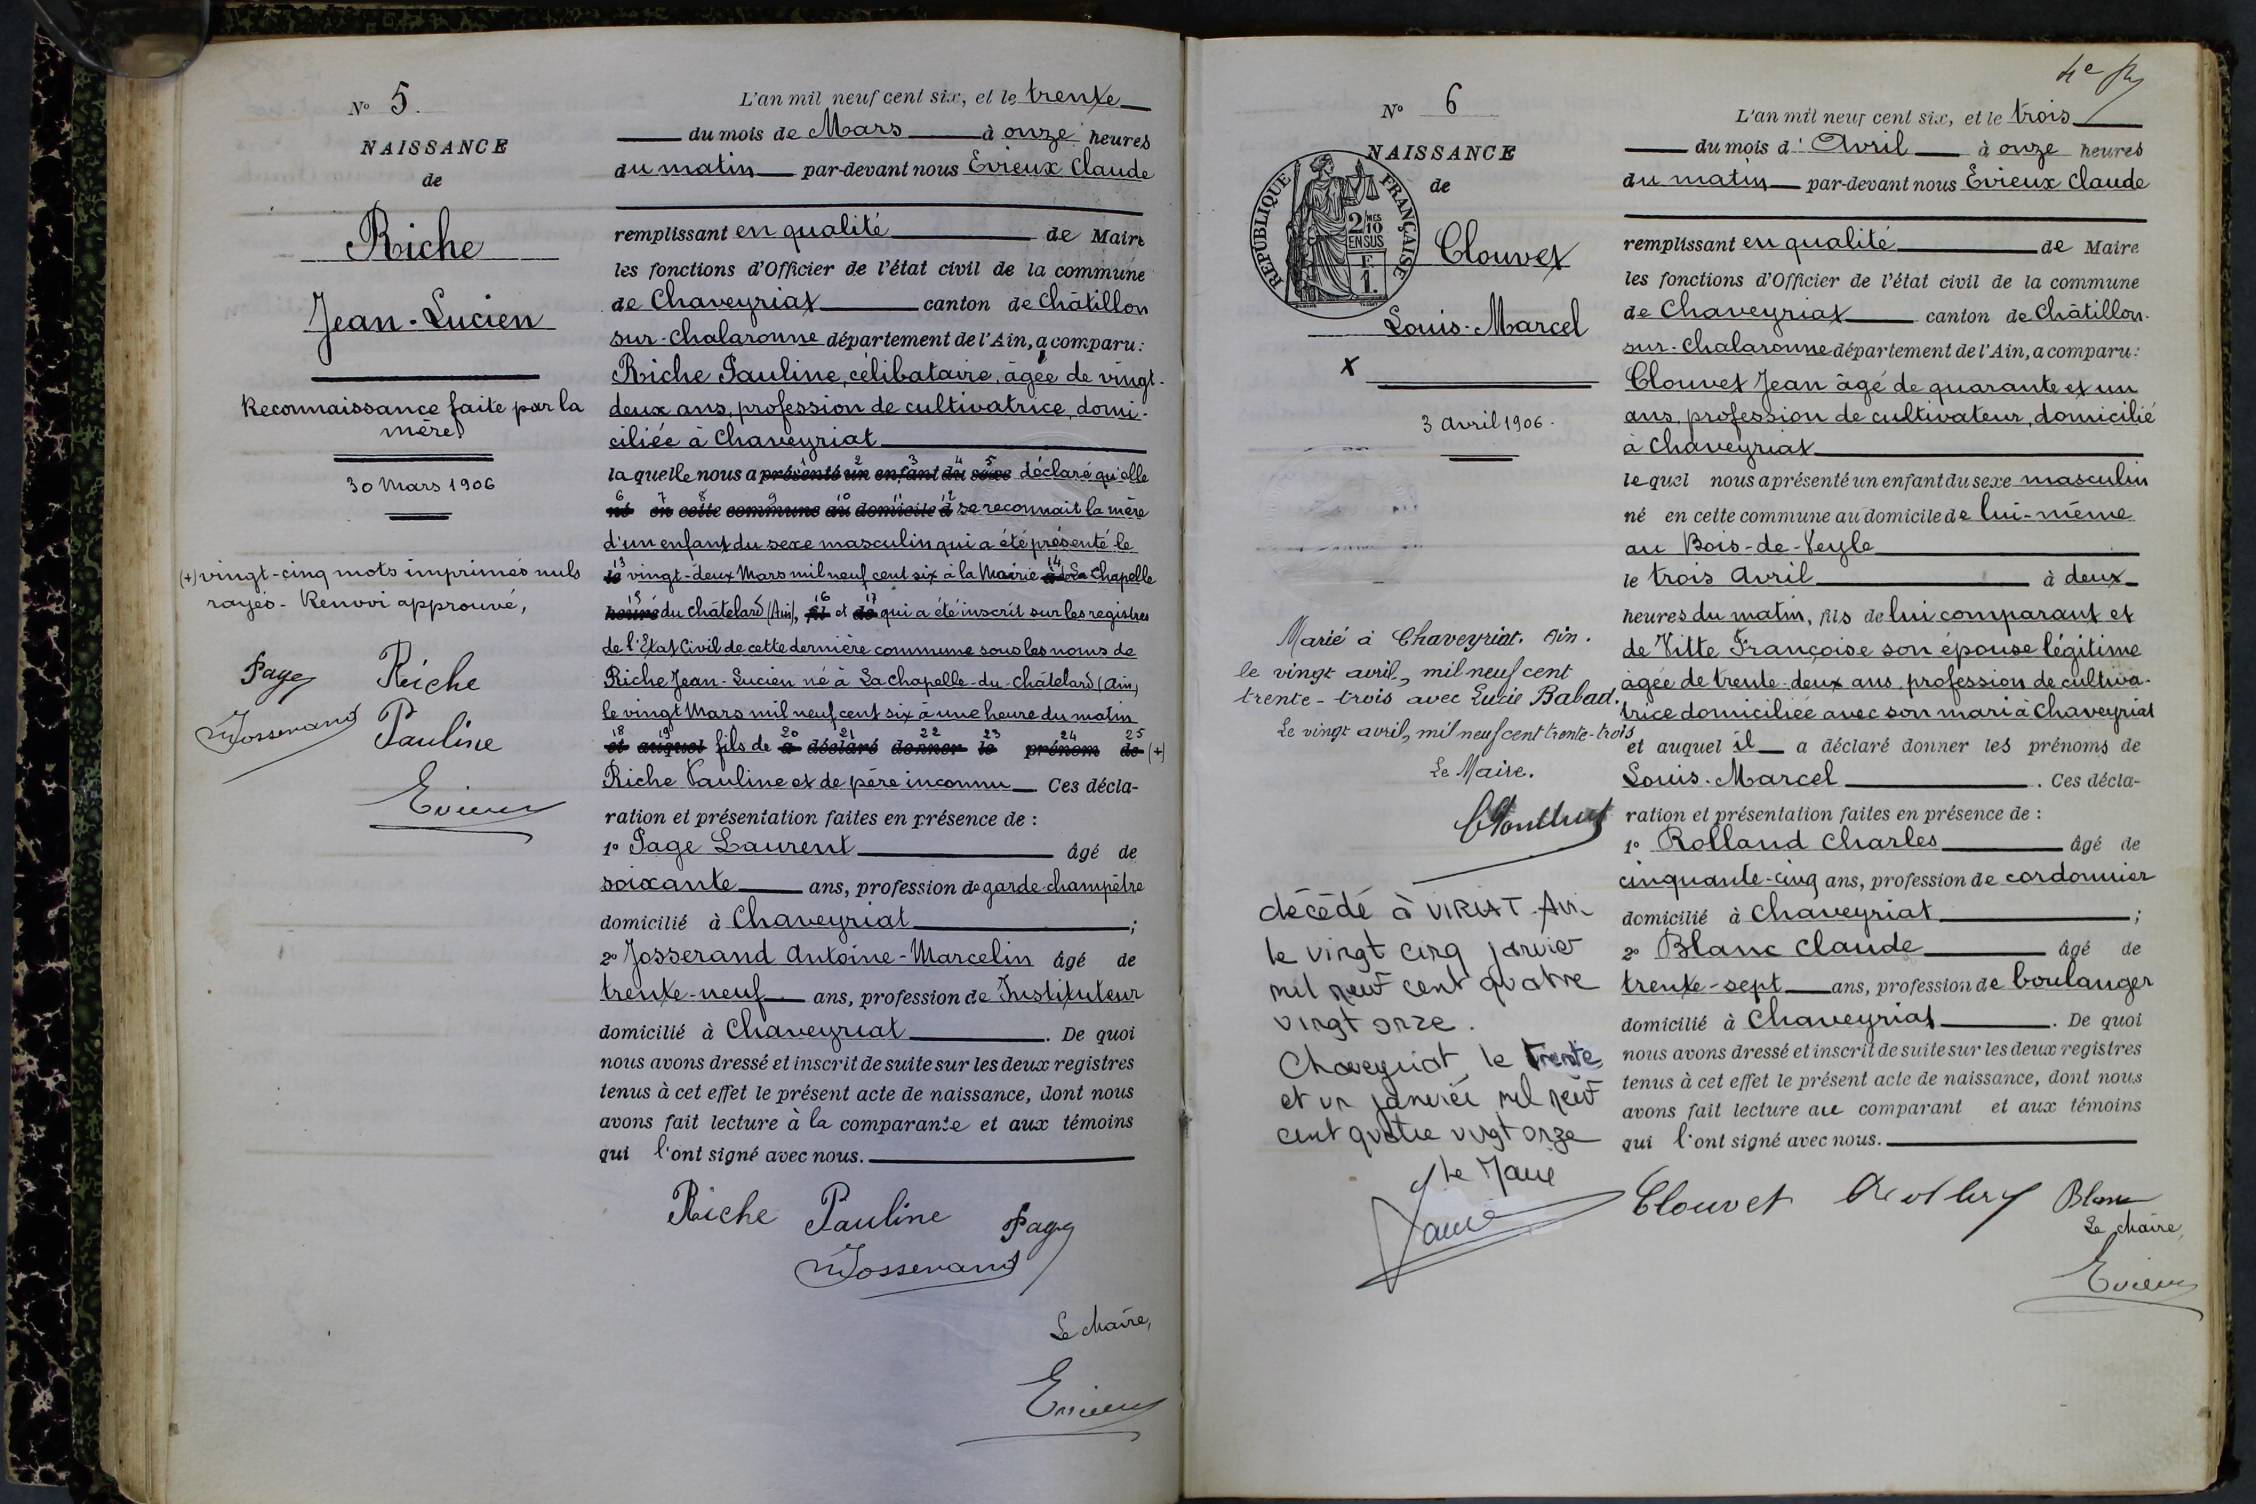 N° 5.
NAISSANCE
de
Riche
Jean-Lucien
Reconnaissance faite par la
mère
30 Mars 1906
(+) vingt-cinq mots imprimés nuls
rayés - Renvoi approuvé,
Page Riche
Josserand Pauline
Evieux
L'an mil neuf cent six, et le trente
du mois de Mars à onze heures
du matin par-devant nous Evieux Claude
remplissant en qualité de Maire
les fonctions d'Officier de l'état civil de la commune
de Chaveyriat canton de Châtillon
sur-Chalaronne département de l'Ain, a comparu :
Riche Pauline, célibataire, âgée de vingt-
deux ans, profession de cultivatrice, domi-
ciliée à Chaveyriat
laquelle nous a présenté un enfant du sexe déclaré qu'elle
né en cette commune au domicile d se reconnait la mère
d'un enfant du sexe masculin qui a été présenté le
le vingt-deux Mars mil neuf cent six à la Mairie à de La Chapelle
heures du châtelard (Ain), fil et de qui a été inscrit sur les registres
de l'Etat Civil de cette dernière commune sous les noms de
Riche Jean-Lucien né à La Chapelle-du-châtelard (Ain)
le vingt Mars mil neuf cent six à une heure du matin
et auquel fils de a déclaré donner le prénom de (+)
Riche Pauline et de père inconnu Ces décla-
ration et présentation faites en présence de :
1° Page Laurent âgé de
soixante ans, profession de garde-champêtre
domicilié à Chaveyriat ;
2° Josserand Antoine-Marcelin âgé de
trente-neuf ans, profession de Instituteur
domicilié à Chaveyriat . De quoi
nous avons dressé et inscrit de suite sur les deux registres
tenus à cet effet le présent acte de naissance, dont nous
avons fait lecture à la comparante et aux témoins
qui l'ont signé avec nous.
Riche Pauline Page
Josserand
Le Maire,
Evieux
N° 6
NAISSANCE
de
REPUBLIQUE FRANÇAISE
2/10 MES
EN SUS
F
1.
Clouvet
Louis-Marcel
X
3 avril 1906.
Marié à Chaveyriat. Ain.
le vingt avril, mil neuf cent
trente-trois avec Lucie Babad.
Le vingt avril, mil neuf cent trente-trois
Le Maire.
décédé à VIRIAT. Ain
le vingt cinq janvier
mil neuf cent quatre
vingt onze.
Chaveyriat, le trente
et un janvier mil neuf
cent quatre vingt onze
Le Maire
L'an mil neuf cent six, et le trois
du mois d'Avril à onze heures
du matin par-devant nous Evieux Claude
remplissant en qualité de Maire
les fonctions d'Officier de l'état civil de la commune
de Chaveyriat canton de Châtillon-
sur-Chalaronne département de l'Ain, a comparu :
Clouvet Jean âgé de quarante et un
ans, profession de cultivateur, domicilié
à Chaveyriat
lequel nous a présenté un enfant du sexe masculin
né en cette commune au domicile de lui-même
au Bois-de-Veyle
le trois Avril à deux
heures du matin, fils de lui comparant et
de Vitte Françoise son épouse légitime
âgée de trente-deux ans, profession de cultiva-
trice domiciliée avec son mari à Chaveyriat
et auquel il a déclaré donner les prénoms de
Louis-Marcel . Ces décla-
ration et présentation faites en présence de :
1° Rolland Charles âgé de
cinquante-cinq ans, profession de cordonnier
domicilié à Chaveyriat ;
2° Blanc Claude âgé de
trente-sept ans, profession de boulanger
domicilié à Chaveyriat . De quoi
nous avons dressé et inscrit de suite sur les deux registres
tenus à cet effet le présent acte de naissance, dont nous
avons fait lecture au comparant et aux témoins
qui l'ont signé avec nous.
Clouvet Blanc
Le Maire,
Evieux